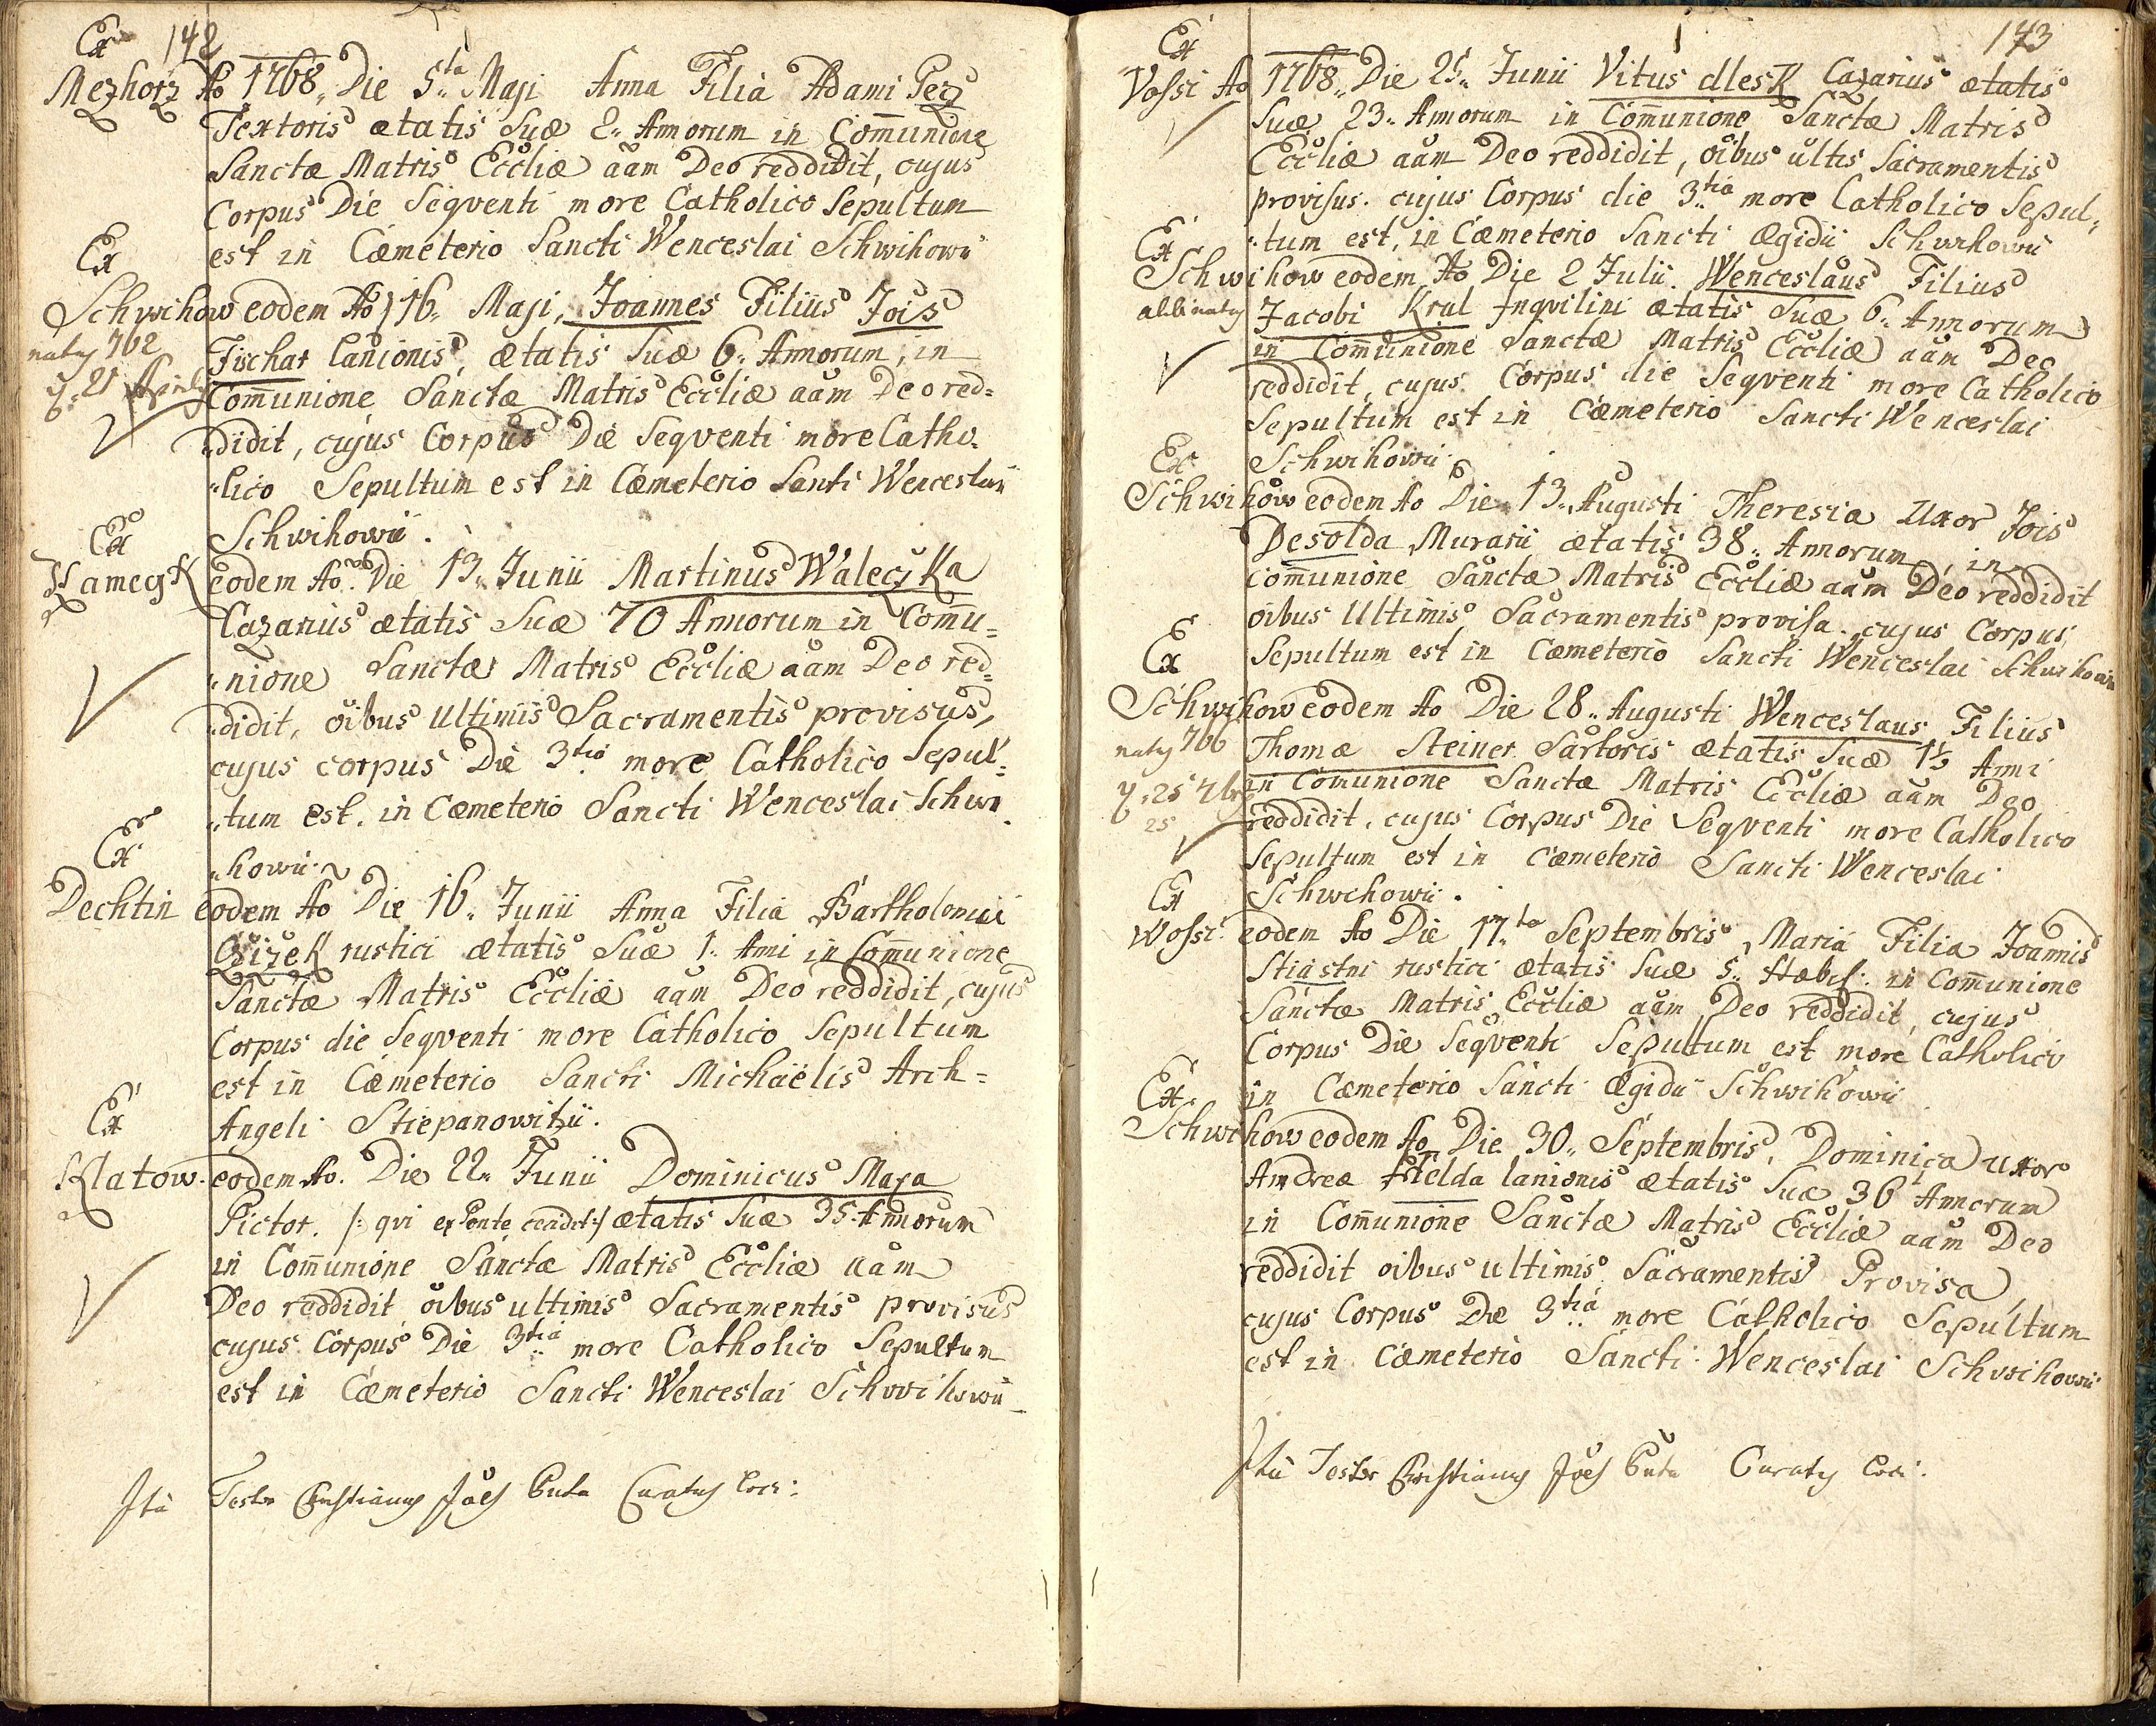 Ex 142
Mezhorz Ao 1768. Die 5ta Maji Anna Filia Adami Pecz
Textoris ætatis Suæ 2. Annorum in Com̄unione
Sanctæ Matris Eccliæ aam Deo reddidit, cujus
Corpus Die Seqventi more Catholico Sepultum
Ex est in Cæmeterio Sancti Wenceslai Schwihowii
Schwihow eodem Ao 16. Maji, Joannes Filius Jois
natq 762 Fischar Lanionis, ætatis Suæ 6. Annorum, in
Com̄unione Sanctæ Matris Eccliæ aam Deo red=
didit, cujus Corpus Die Seqventi more Catho=
lico Sepultum est in Cæmeterio Santi Wenceslaii
Ex Schwihowii.
eodem Ao. Die 13. Junii Martinus Waleczka
Cazarius ætatis Suæ 70 Annorum in Com̄u=
nione Sanctæ Matris Eccliæ aam Deo red=
didit, oibus Ultimis Sacramentis provisus,
cujus corpus Die 3tia more Catholico Sepul=
tum est. in Cæmeterio Sancti Wenceslai Schwi
Ex howii.
Dechtin eodem Ao Die 16. Junii Anna Filia Bartholomæi
Czizek rustici ætatis Suæ 1. Anni in Com̄unione
Sanctæ Matris Eccliæ aam Deo reddidit, cujus
Corpus die Seqventi more Catholico Sepultum
est in Cæmeterio Sancti Michaëlis Arch=
Ex Angeli Stiepanowitzii.
Klatow. eodem Ao. Die 22. Junii Dominicus Maxa
Pictor. /: qvi ex Ponte cecidit :/ ætatis Suæ 35. Annorum
in Com̄unione Sanctæ Matris Eccliæ aam
Deo reddidit oibus ultimis Sacramentis provisus
cujus Corpus Die 3tia more Catholico Sepultum
est in Cæmeterio Sancti Wenceslai Schwihowii
Ita Testor Christianus Joës Curatus loci:
143
Ex
Vossi Ao 1768. Die 25. Junii Vitus Cazarius ætatis
Suæ 23. Annorum in Com̄unione Sanctæ Matris
Eccliæ aam Deo reddidit, oibus ultis Sacramentis
provisus. cujus Corpus die 3tia more Catholico Sepul=
Ex tum est, in Cæmeterio Sancti Ægidii Schwihowii
Schwihow eodem Ao Die 2 Julii. Wenceslaus Filius
alibi natq Jacobi Kral Inqvilini ætatis Suæ 6. Annorum
in Com̄unione Sanctæ Matris Eccliæ aam Deo
reddidit, cujus Corpus die Seqventi more Catholico
Sepultum est in Cæmeterio Sancti Wenceslai
Ex Schwihowii.
Schwihow eodem Ao Die 13. Augusti Theresia Uxor Jois
Desolda Murarii ætatis 38. Annorum, in
Com̄unione Sanctæ Matris Eccliæ aam Deo reddidit
oibus Ultimis Sacramentis provisa. cujus Corpus
Ex Sepultum est in Cæmeterio Sancti Wenceslai Schwihowii
Schwihow eodem Ao Die 28. Augusti Wenceslaus Filius
natq 766 Thomæ Steiner Sartoris ætatis Suæ 1½ Anni
in Comunione Sanctæ Matris Eccliæ aam Deo
25 reddidit, cujus Corpus Die Seqventi more Catholico
Sepultum est in Cæmeterio Sancti Wenceslai
Ex Schwihowii.
Wossi eodem Ao Die 17.ta Septembris, Maria Filia Joannis
Stiastni rustici ætatis Suæ 5. in Com̄unione
Sanctæ Matris Eccliæ aam Deo reddidit, cujus
Corpus Die Seqventi Sepultum est more Catholico
Ex in Cæmeterio Sancti Ægidii Schwihowii
Schwihow eodem Ao Die 30. Septembris, Dominica uxor
Andreæ lanionis ætatis Suæ 36 Annorum
in Com̄unione Sanctæ Matris Eccliæ aam Deo
reddidit oibus ultimis Sacramentis Provisa,
cujus Corpus Die 3tia more Catholico Sepultum
est in Cæmeterio Sancti Wenceslai Schwihowii
Ita Testor Christianus Joës Curatus loci: